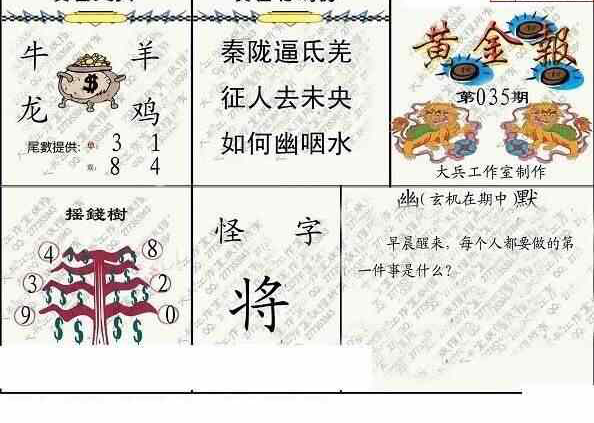 牛 羊
龙 鸡
$
尾數提供: 单: 3 1
双: 8 4
秦陇逼氐羌
征人去未央
如何幽咽水
黄金報
第035期
大兵工作室制作
摇錢樹
4 8
3 2
9 0
怪 字
将
幽(玄机在期中)默
早晨醒来，每个人都要做的第
一件事是什么？